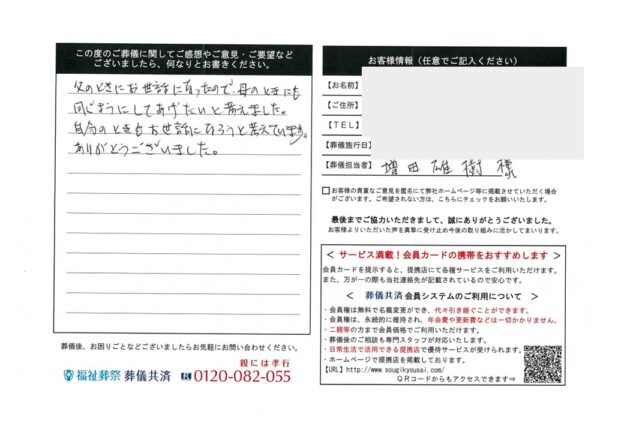 この度のご葬儀に関してご感想やご意見・ご要望など
ございましたら、何なりとお書きください。
父のときにお世話になったので、母のときにも
同じようにしてあげたいと考えました。
自分のときもお世話になろうと考えています。
ありがとうございました。
葬儀後、お困りごとなどございましたらお気軽にお問い合わせください。
親には孝行
福祉葬祭 葬儀共済 0120-082-055
お客様情報(任意でご記入ください)
【お名前】
【ご住所】
【TEL】
【葬儀施行日】
【葬儀担当者】 増田雄樹様
お客様の貴重なご意見を匿名にて弊社ホームページ等に掲載させていただく場合
がございます。ご希望されない方は、こちらにチェックをお願いいたします。
最後までご協力いただきまして、誠にありがとうございました。
お客様よりいただいた声を真摯に受け止め今後の取り組みに活かしてまいります。
< サービス満載!会員カードの携帯をおすすめします >
会員カードを提示すると、提携店にて各種サービスをご利用いただけます。
また、万が一の際も当社連絡先が記載されているので安心です。
< 葬儀共済 会員システムのご利用について >
・会員権は無料で名義変更ができ、代々引き継ぐことができます。
・会員権は、永続的に維持され、年会費や更新費などは一切かかりません。
・二親等の方まで会員価格でご利用いただけます。
・葬儀後のご相談も専門スタッフが対応いたします。
・日常生活で活用できる提携店で優待サービスが受けられます。
・ホームページで提携店を掲載しております。
【URL】http://www.sougikyousai.com/
QRコードからもアクセスできます⇒